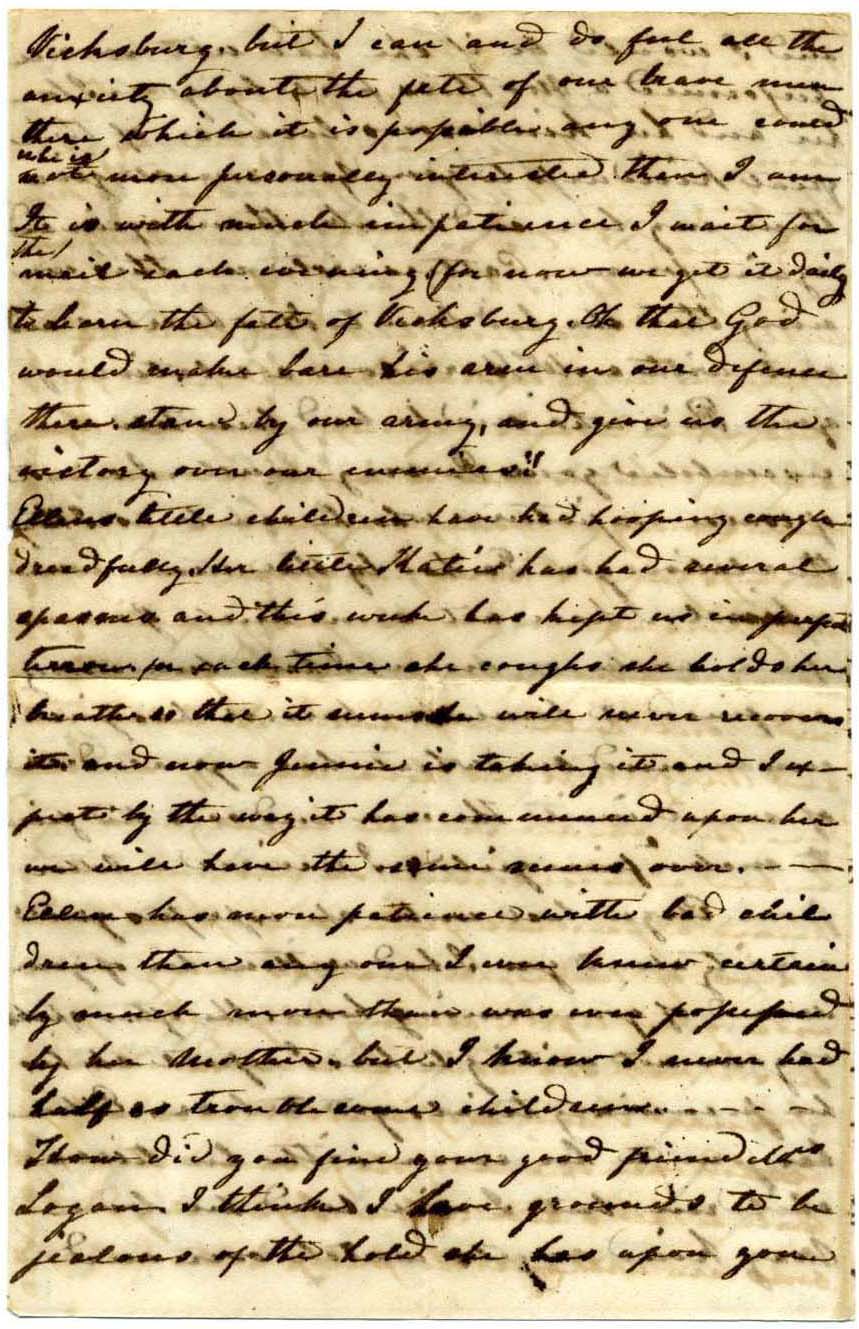 Vicksburg. but I can and do feel all the
anxiety about the fate of our brave men
there which it is possible any one could
who is
not more personally interested than I am
It is with much impatience I wait for
the
mail each evening (for now we get it daily
to learn the fate of Vicksburg. Oh that God
would make bare his arm in our defence
there stand by our army, and give us the
victory over our enemies!!
Ellens little children have had hooping cough
dreadfully. Her little Katie has had several
spasms and this week has kept us in perfect
terror for each time she coughs she holds her
breath so that it seems she will never recover
it. and now Jennie is taking it and I ex-
pect by the way it has commenced upon her
we will have the same scenes over. - —
Ellen has more patience with bad chil
dren than any one I ever knew certain
ly much more than was ever possessed
by her Mother. but I know I never had
half as troublesome children. - - - -
How did you find your good friend Mrs
Logan I think I have grounds to be
jealous of the hold she has upon you